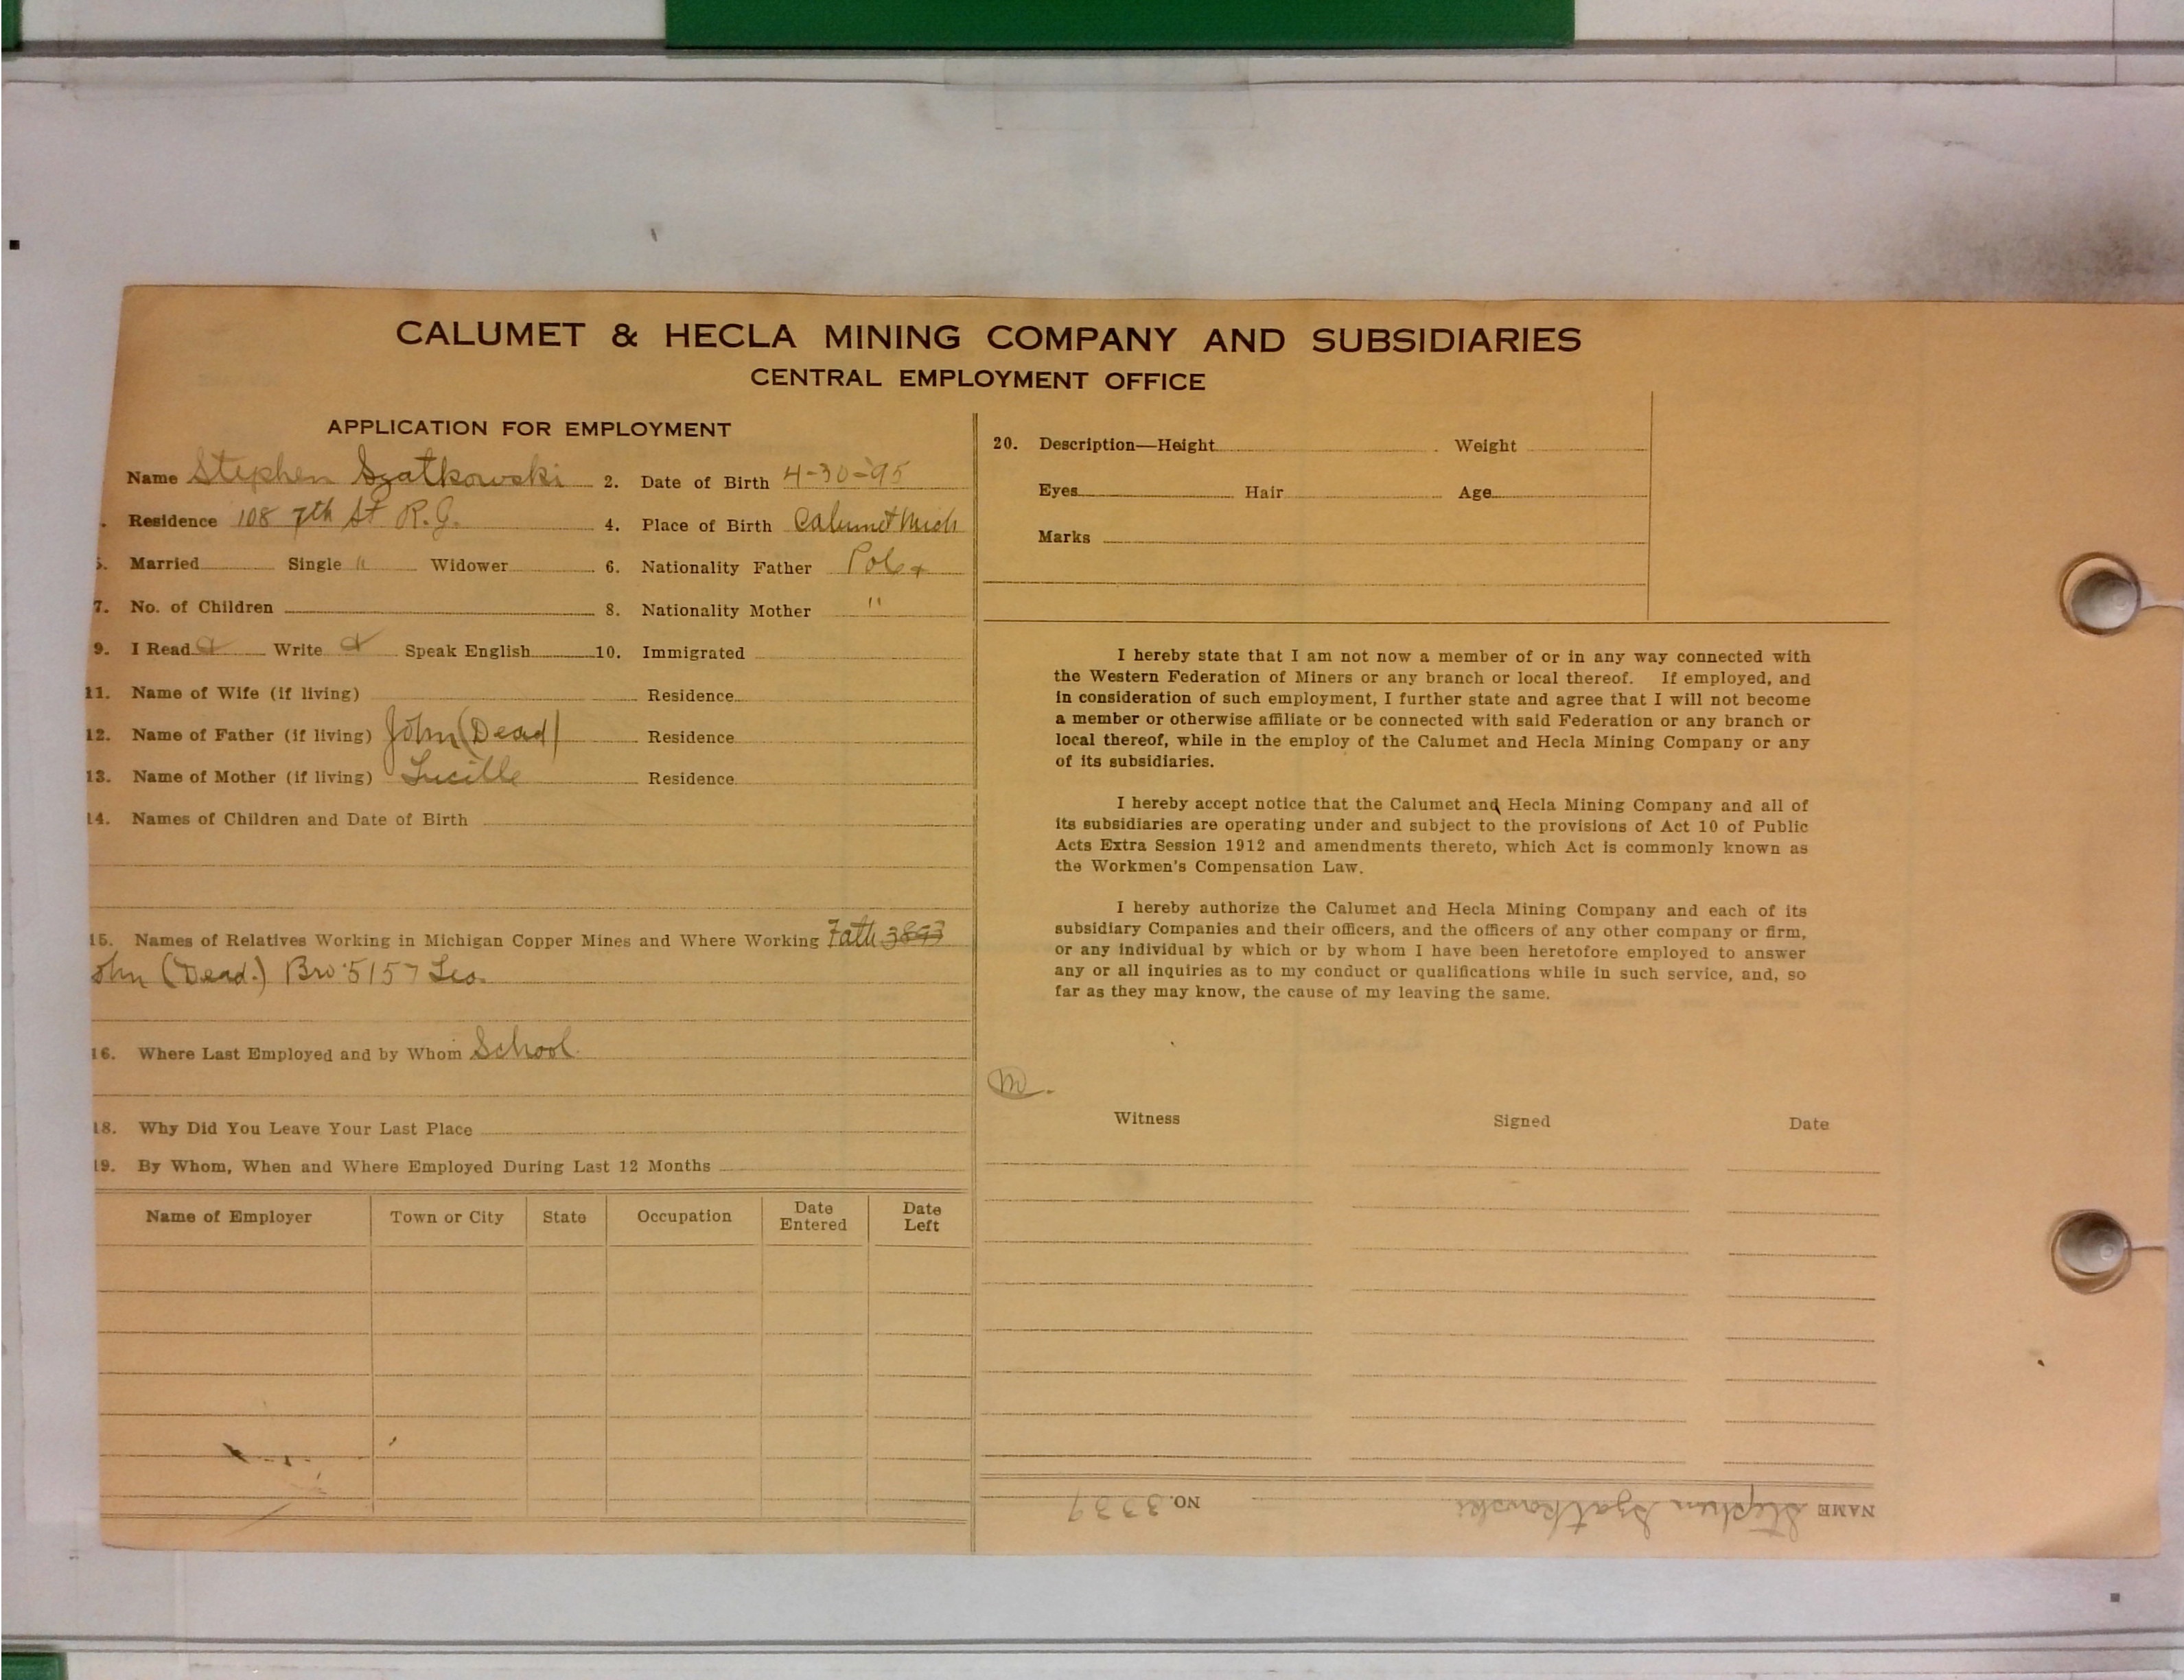 CALUMET & HECLA MINING COMPANY AND SUBSIDIARIES
CENTRAL EMPLOYMENT OFFICE
APPLICATION FOR EMPLOYMENT
Name Stephen Szatkowski 2. Date of Birth 4-30-95
. Residence 108 7th St R.J. 4. Place of Birth Calumet Mich
5. Married Single " Widower 6. Nationality Father Pole
7. No. of Children 8. Nationality Mother "
9. I Read Write Speak English 10. Immigrated
11. Name of Wife (if living) Residence
12. Name of Father (if living) John (Dead) Residence
13. Name of Mother (if living) Lucille Residence
14. Names of Children and Date of Birth
15. Names of Relatives Working in Michigan Copper Mines and Where Working Fath 3893
ohn (Dead.) Bro 5157 Leo.
16. Where Last Employed and by Whom School
18. Why Did You Leave Your Last Place
19. By Whom, When and Where Employed During Last 12 Months
Name of Employer Town or City State Occupation Date Entered Date Left
20. Description—Height Weight
Eyes Hair Age
Marks
I hereby state that I am not now a member of or in any way connected with
the Western Federation of Miners or any branch or local thereof. If employed, and
in consideration of such employment, I further state and agree that I will not become
a member or otherwise affiliate or be connected with said Federation or any branch or
local thereof, while in the employ of the Calumet and Hecla Mining Company or any
of its subsidiaries.
I hereby accept notice that the Calumet and Hecla Mining Company and all of
its subsidiaries are operating under and subject to the provisions of Act 10 of Public
Acts Extra Session 1912 and amendments thereto, which Act is commonly known as
the Workmen's Compensation Law.
I hereby authorize the Calumet and Hecla Mining Company and each of its
subsidiary Companies and their officers, and the officers of any other company or firm,
or any individual by which or by whom I have been heretofore employed to answer
any or all inquiries as to my conduct or qualifications while in such service, and, so
far as they may know, the cause of my leaving the same.
m.
Witness Signed Date
NAME Stephen Szatkowski NO. 3339